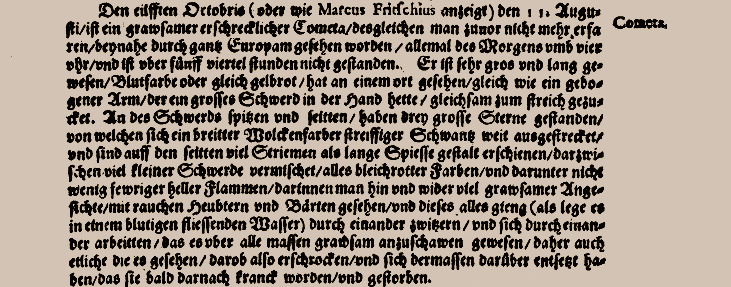 Den eilfften Octobris (oder wie Marcus Fritschius anzeigt) den 11. Augu-
sti/ist ein grawsamer erschrecklicher Cometa/desgleichen man zuuor nicht mehr erfa
ren/beynahe durch gantz Europam gesehen worden/allemal des Morgens vmb vier
vhr/vnd ist vber fünff viertel stunden nicht gestanden. Er ist sehr gros vnd lang ge-
wesen/Blutfarbe oder gleich gelbrot/hat an einem ort gesehen/gleich wie ein gebo-
gener Arm/der ein grosses Schwerd in der Hand hette/gleichsam zum streich gezu-
cket. An des Schwerds spitzen vnd seitten/haben drey grosse Sterne gestanden/
von welchen sich ein breitter Wolckenfarber streiffiger Schwantz weit ausgestrecket/
vnd sind auff den seitten viel Striemen als lange Spiesse gestalt erschienen/darzwi-
schen viel kleiner Schwerde vermischet/alles bleichrotter Farben/vnd darunter nicht
wenig fewriger heller Flammen/darinnen man hin vnd wider viel grawsamer Ange-
sichte/mit rauchen Heubtern vnd Bärten gesehen/vnd dieses alles gieng (als lege es
in einem blutigen fliessenden Wasser) durch einander zwitzern/vnd sich durch einan-
der arbeitten/das es vber alle massen grawsam anzuschawen gewesen/daher auch
etliche die es gesehen/darob also erschrocken/vnd sich dermassen darüber entsetzt ha-
ben/das sie bald darnach kranck worden/vnd gestorben.
Cometa.